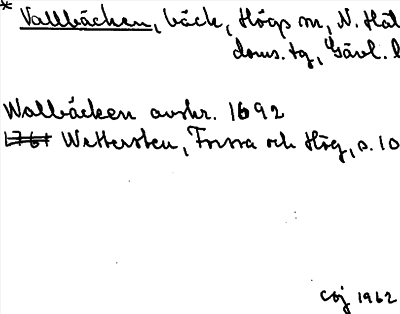 * Vallbäcken, bäck, Högs sn, N. Häl
doms. tg, Gävl. l
Wallbäcken avskr. 1692
1761 Wettersten, Forssa och Hög, s. 10
CGJ 1962